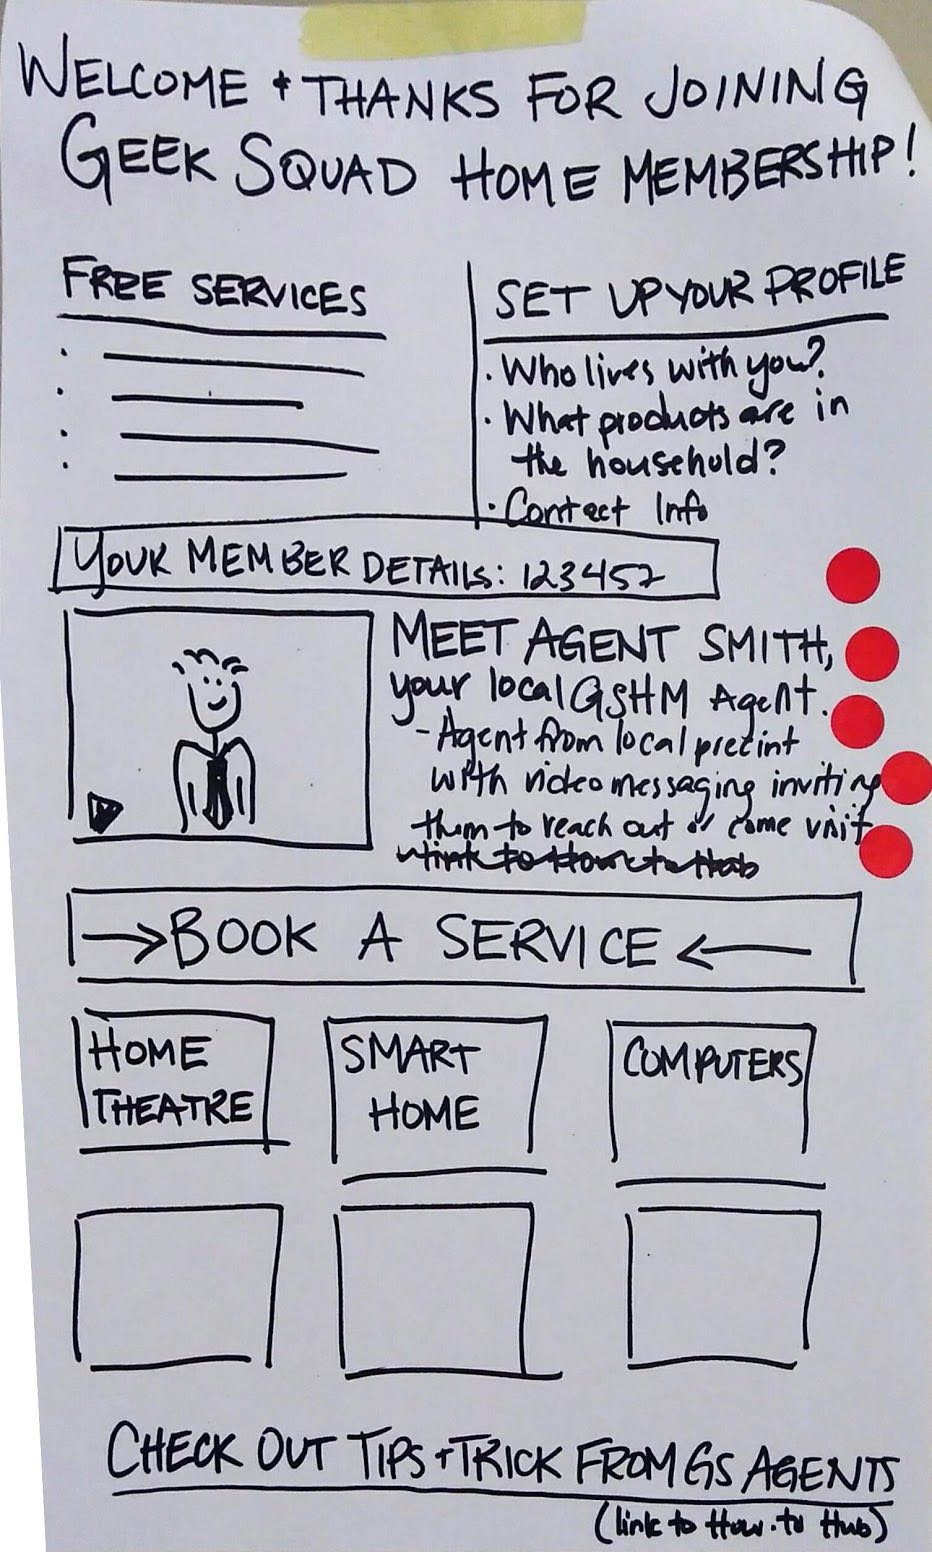 WELCOME + THANKS FOR JOINING
GEEK SQUAD HOME MEMBERSHIP!
FREE SERVICES
SET UP YOUR PROFILE
· Who lives with you?
· What products are in
the household?
· Contact Info
YOUR MEMBER DETAILS: 123457
MEET AGENT SMITH,
your local GSHM Agent.
- Agent from local precint
with video messaging inviting
them to reach out or come visit
- link to How to Hub
→ BOOK A SERVICE ←
HOME
THEATRE
SMART
HOME
COMPUTERS
CHECK OUT TIPS + TRICK FROM GS AGENTS
(link to How-to Hub)